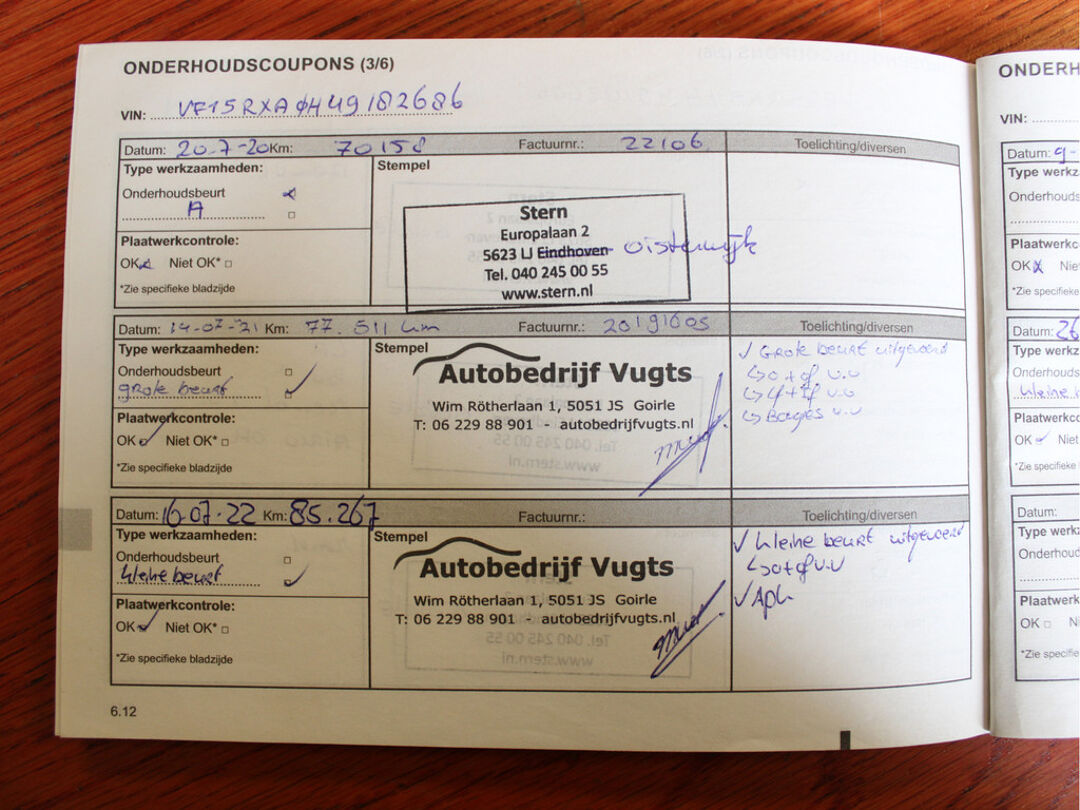 ONDERHOUDSCOUPONS (3/6)
VIN: VF15RXA0H49182686
Datum: 20-7-20 Km: 70158 Factuurnr.: 22106 Toelichting/diversen
Type werkzaamheden:
Onderhoudsbeurt
A
Plaatwerkcontrole:
OK Niet OK*
*Zie specifieke bladzijde
Stempel
Stern
Europalaan 2
5623 LJ Eindhoven Oisterwijk
Tel. 040 245 00 55
www.stern.nl
Datum: 14-07-21 Km: 77.511 km Factuurnr.: 20191605 Toelichting/diversen
Type werkzaamheden:
Onderhoudsbeurt
grote beurt
Plaatwerkcontrole:
OK Niet OK*
*Zie specifieke bladzijde
Stempel
Autobedrijf Vugts
Wim Rötherlaan 1, 5051 JS Goirle
T: 06 229 88 901 - autobedrijfvugts.nl
✓ Grote beurt uitgevoerd
↳ o+of v.v
↳ lf+if v.v
↳ Bougies v.v
Datum: 16-07-22 Km: 85.267 Factuurnr.: Toelichting/diversen
Type werkzaamheden:
Onderhoudsbeurt
kleine beurt
Plaatwerkcontrole:
OK Niet OK*
*Zie specifieke bladzijde
Stempel
Autobedrijf Vugts
Wim Rötherlaan 1, 5051 JS Goirle
T: 06 229 88 901 - autobedrijfvugts.nl
✓ kleine beurt uitgevoerd
↳ o+of v.v
✓ Apk
6.12
ONDERH
VIN:
Datum: 9-
Type werkz
Onderhouds
Plaatwerkco
OK Nie
*Zie specifieke
Datum: 26
Type werkz
Onderhouds
kleine
Plaatwerkco
OK Nie
*Zie specifieke
Datum:
Type werkz
Onderhoud
Plaatwerk
OK Ni
*Zie specifie